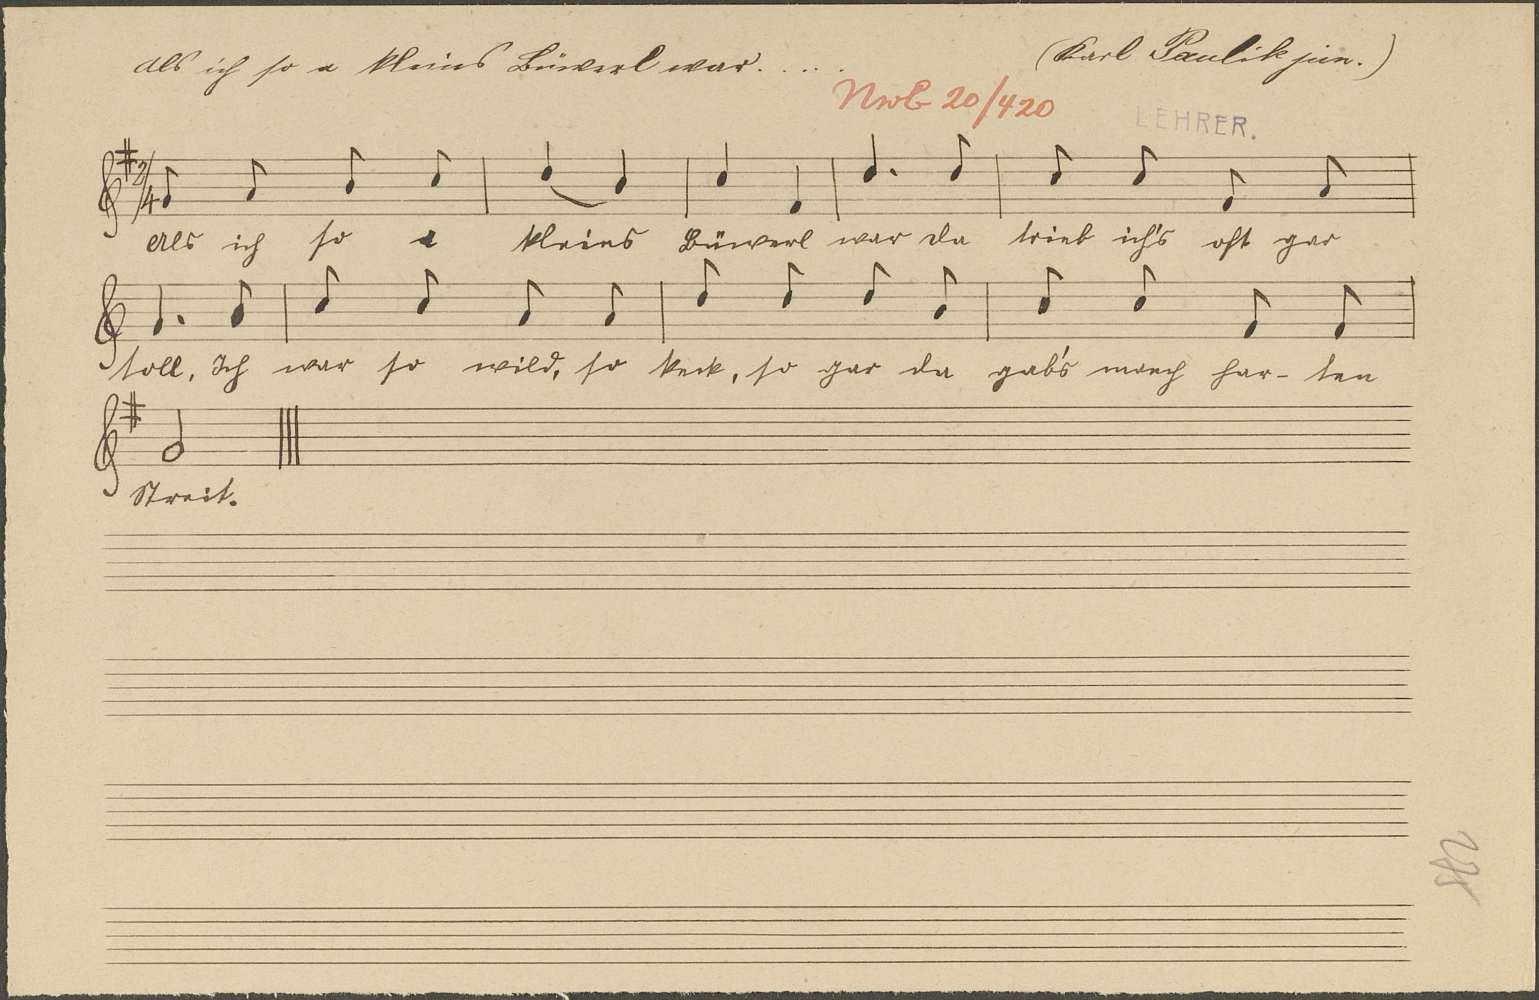 Als ich so a kleins Büwerl war. . . . .
(Karl Paulik jun.)
NwB 20/420
LEHRER.
2/4
Als ich so a kleins Büwerl war da trieb ich's oft gar
toll, Ich war so wild, so keck, so gar da gab's manch har- ten
Streit.